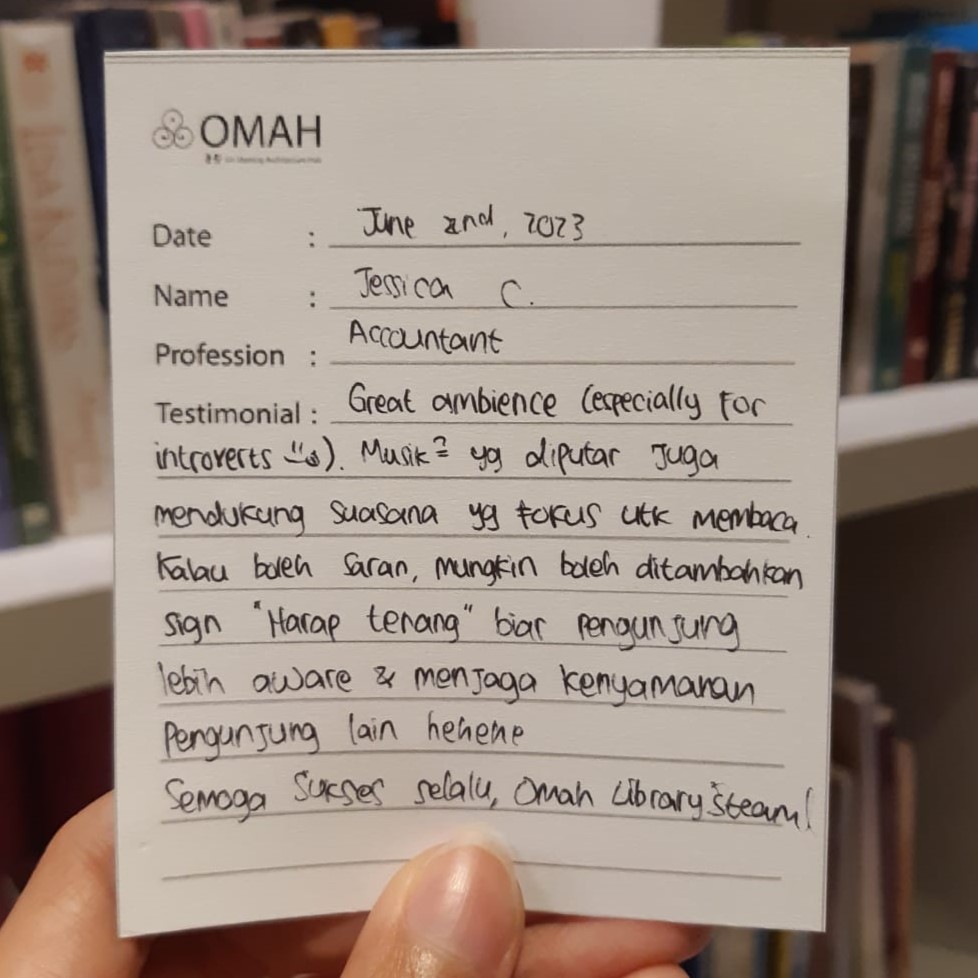 OMAH
Date : June 2nd, 2023
Name : Jessica C.
Profession : Accountant
Testimonial : Great ambience (especially for
introverts ). Musik² yg diputar juga
mendukung suasana yg fokus utk membaca.
Kalau boleh saran, mungkin boleh ditambahkan
sign "Harap tenang" biar pengunjung
lebih aware & menjaga kenyamanan
pengunjung lain hehehe
Semoga sukses selalu, Omah Library's team!